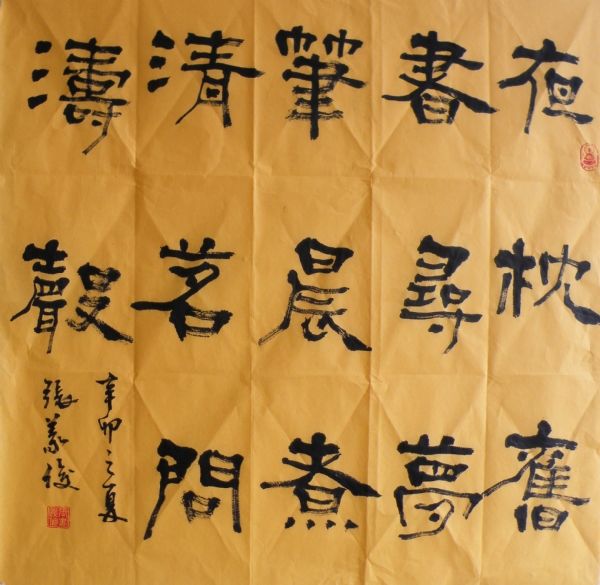 夜枕舊
書尋夢
筆晨煮
清茗問
濤聲
辛卯之夏
張義